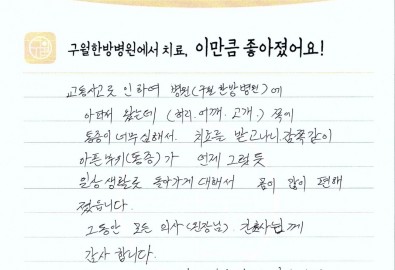 구월한방병원에서 치료, 이만큼 좋아졌어요!
교통사고로 인하여 병원(구월한방병원)에
아파서 왔는데 (허리. 어깨. 고개.) 쪽에
통증이 너무 심해서. 치료를 받고나니 감쪽같이
아픈 부위(통증)가 언제 그렇듯
일상생활로 돌아가게 대해서 몸이 많이 편해
졌습니다.
그동안 모든 의사(원장님) 간호사님께
감사 합니다.